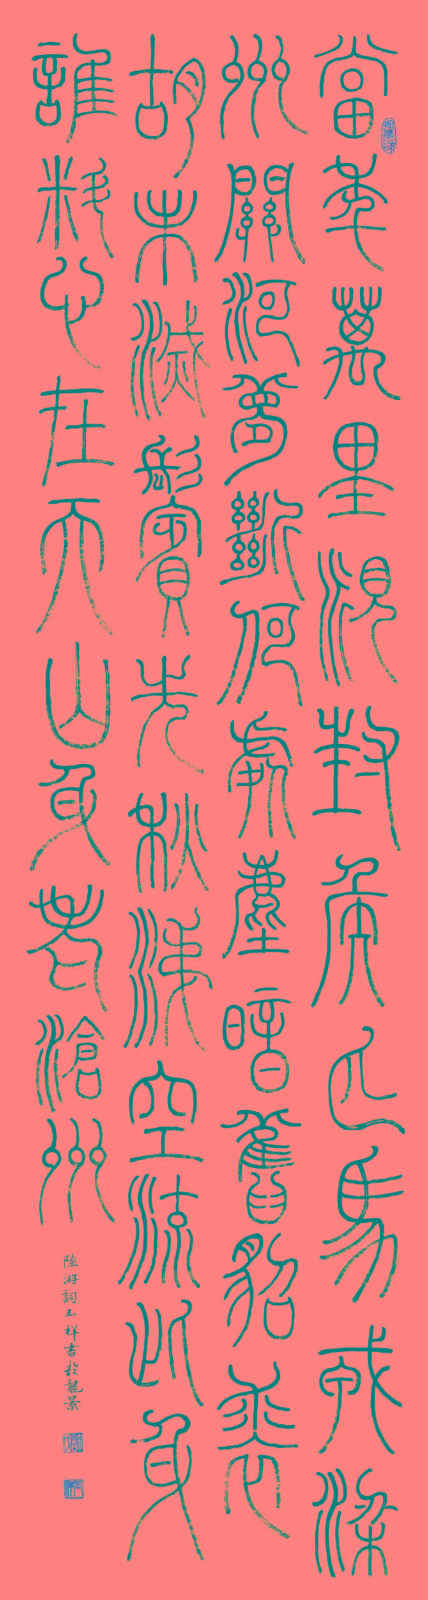 當年萬里覓封侯匹馬戍梁
州關河夢斷何處塵暗舊貂裘
胡未滅鬢先秋淚空流此身
誰料心在天山身老滄州
陸游詞玉祥書於龍景